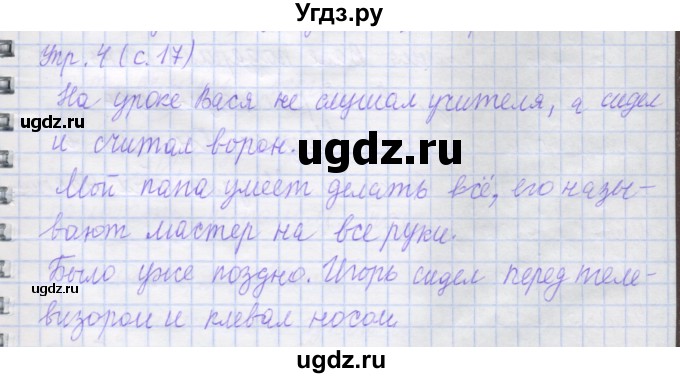 Угдз.ру
Упр. 4 (с. 17)
На уроке Вася не слушал учителя, а сидел
ugdz.ru
и считал ворон.
ugdz.ru
Мой папа умеет делать всё, его назы-
ugdz.ru
вают мастер на все руки.
Было уже поздно. Игорь сидел перед теле-
ugdz.ru
ugdz.ru
визором и клевал носом.
ugdz.ru